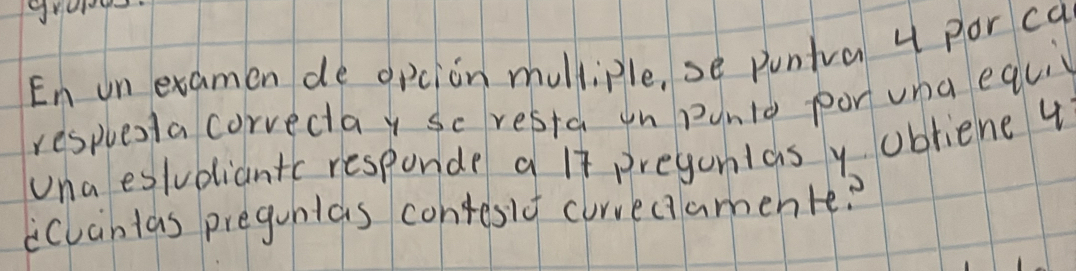 En un examen de opción multiple, se puntua 4 por ca
respuesta correcta y se resta un punto por una equiv
Una estudiante responde a 17 preguntas y obtiene 4
¿Cuántas preguntas contestó correctamente?